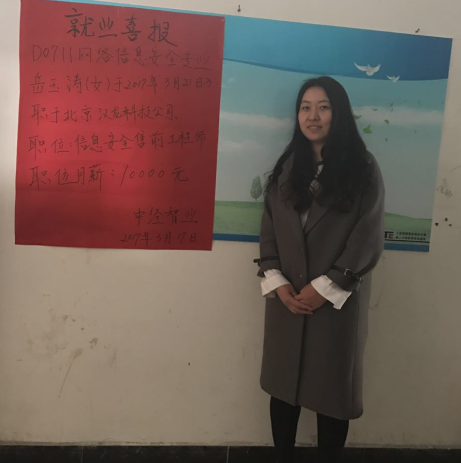 就业喜报
D0711网络信息安全专业
岳玉涛(女)于2017年3月21日入
职于北京汉龙科技公司
职位:信息安全售前工程师
职位月薪:10000元
中经智业
2017年3月17日